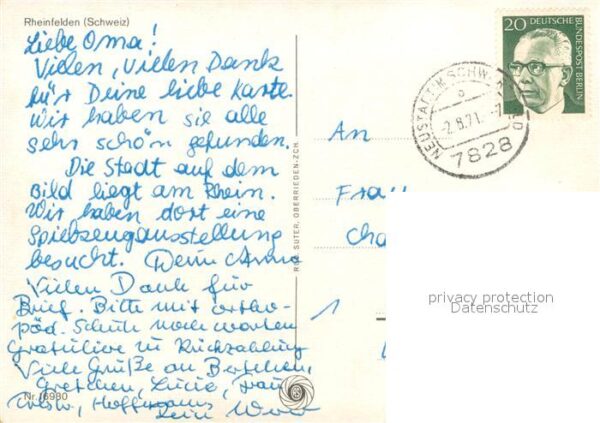 Rheinfelden (Schweiz)
Liebe Oma!
Vielen, vielen Dank
für Deine liebe Karte.
Wir haben sie alle
sehr schön gefunden.
Die Stadt auf dem
Bild liegt am Rhein.
Wir haben dort eine
Spielzeugausstellung
besucht. Deine
Vielen Dank für
Brief. Bitte mit ortho-
päd. Schuh noch warten
Gratuliere zu Rückzahlung
Viele Grüße an
Gretchen, Lucie, Frau
Hoffmanns
Nr. 16980
RUD. SUTER, OBERRIEDEN-ZCH.
20 DEUTSCHE
BUNDESPOST BERLIN
NEUSTADT IM SCHW
-2.8.71.-7
7828
An
Frau
1
privacy protection
Datenschutz